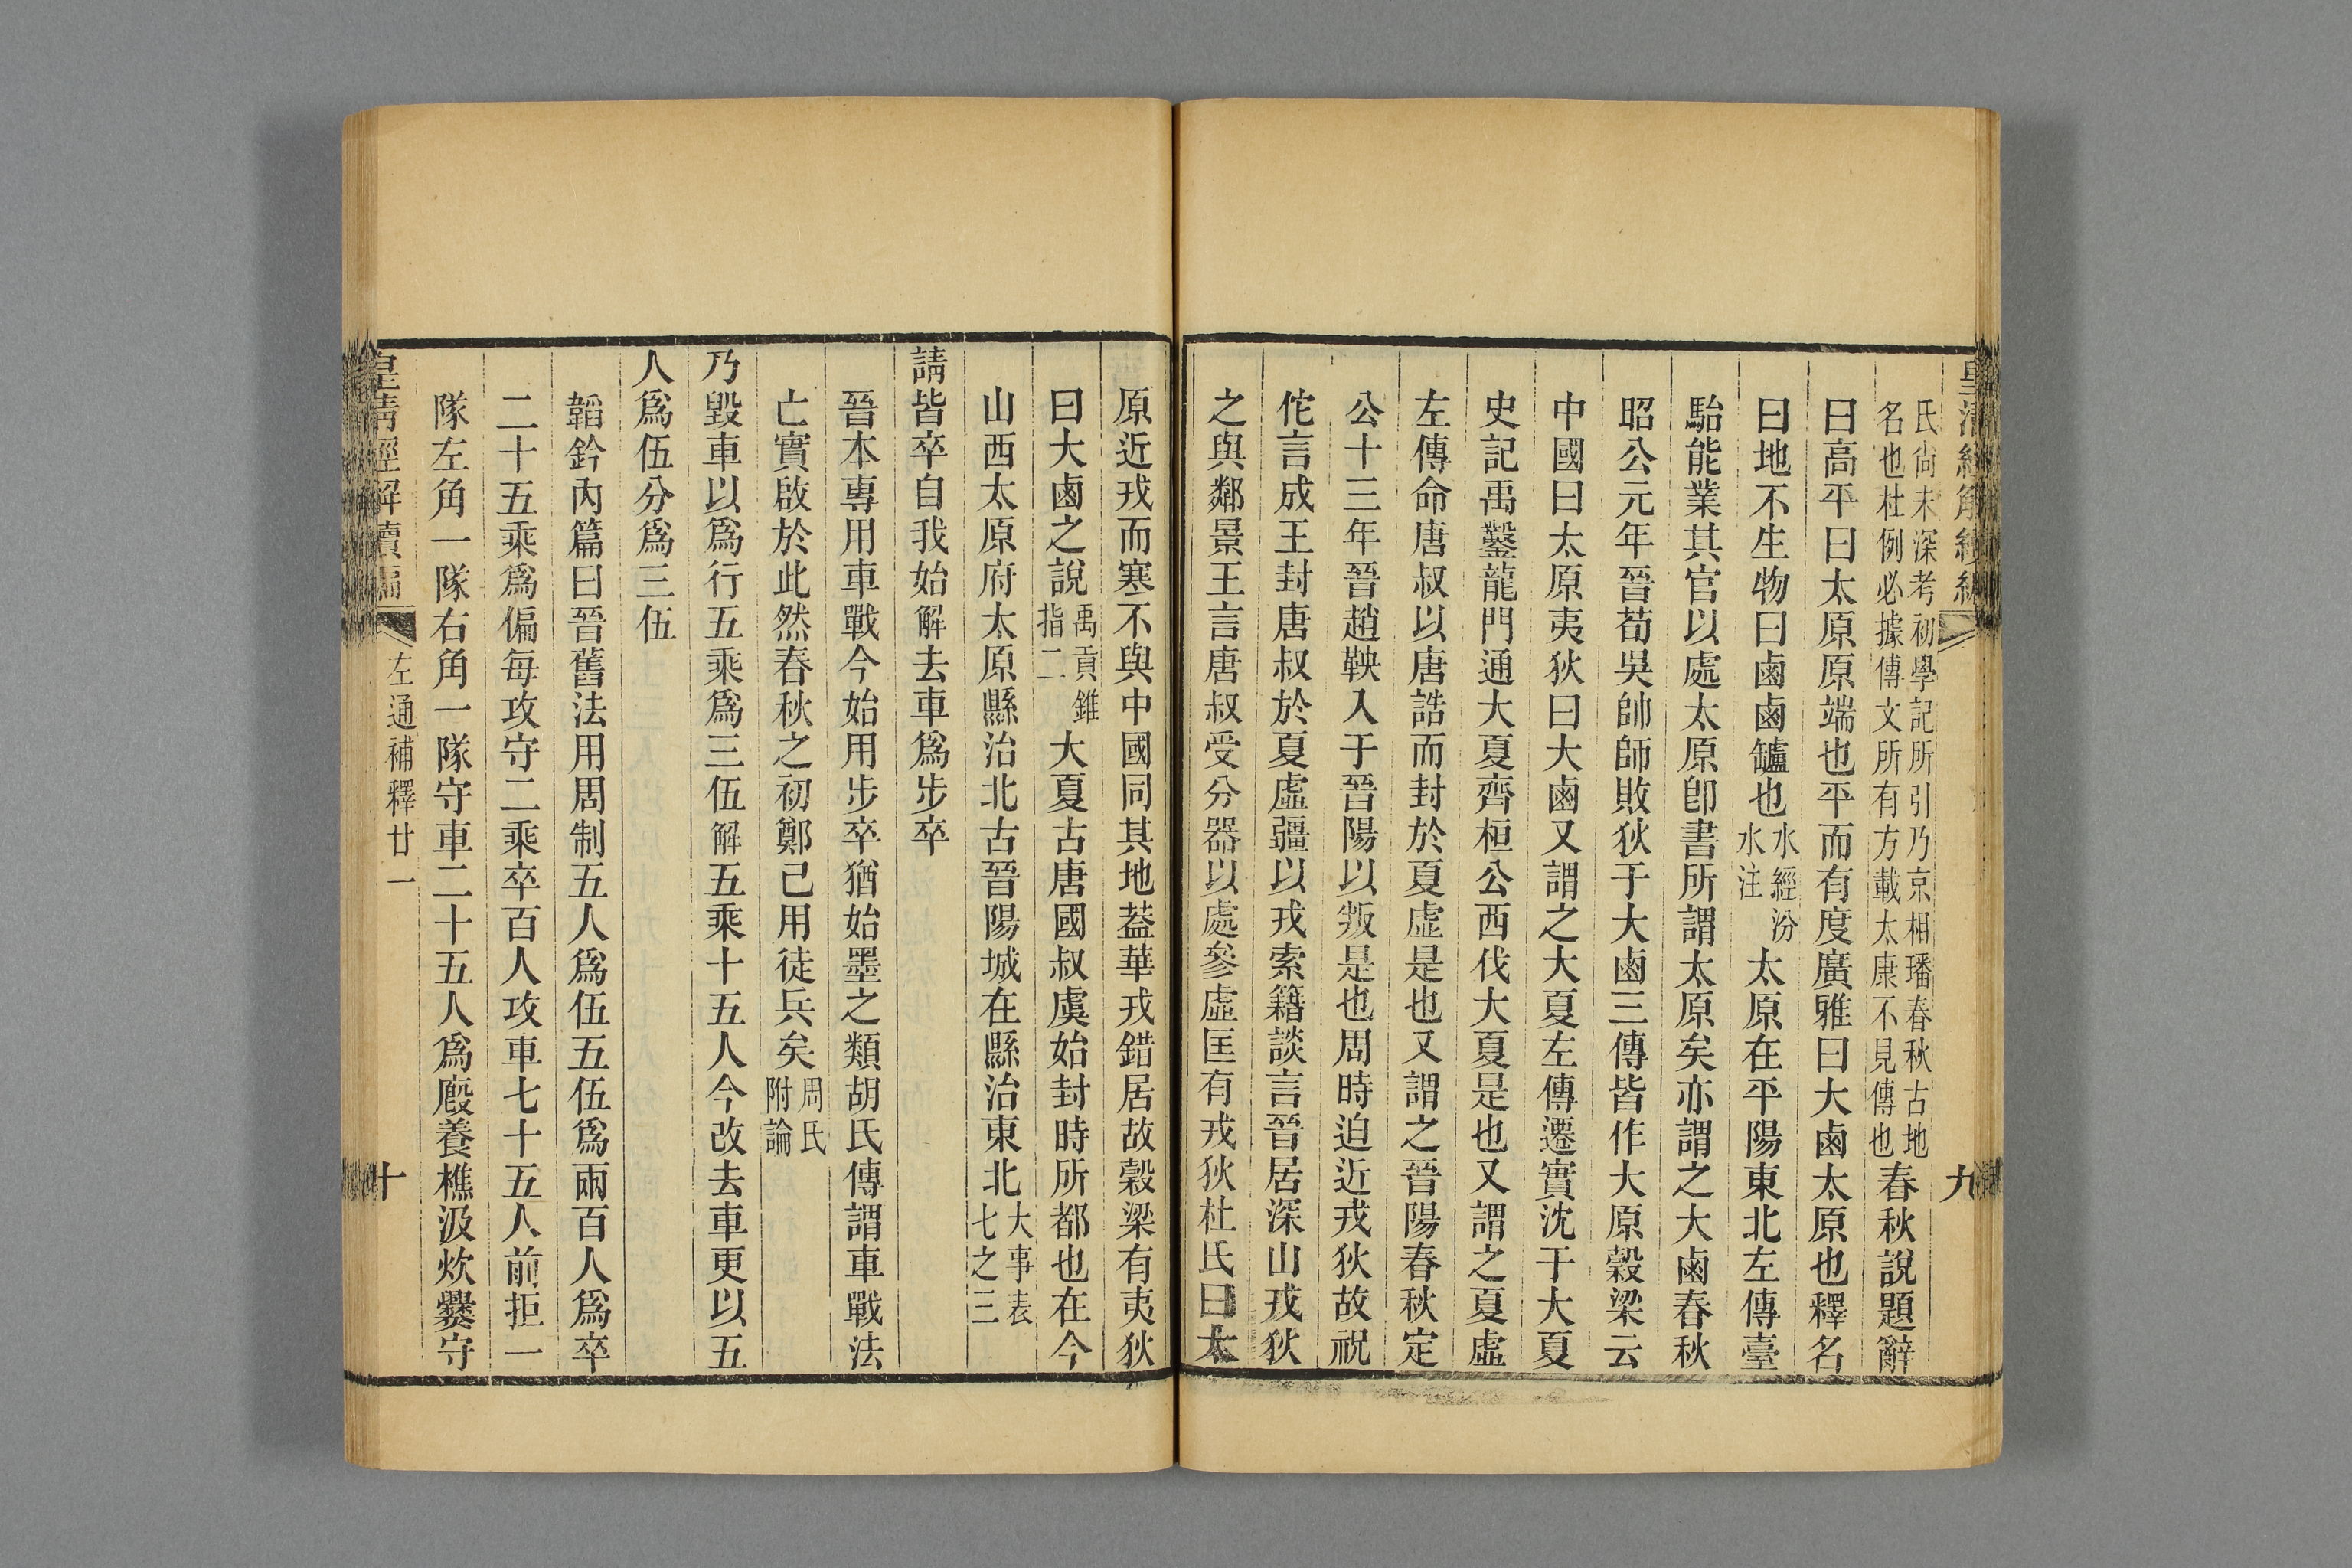 皇清經解續編
九
氏尙未深考初學記所引乃京相璠春秋古地
名也杜例必據傳文所有方載太康不見傳也春秋說題辭
曰高平曰太原原端也平而有度廣雅曰大鹵太原也釋名
曰地不生物曰鹵鹵鑪也水經汾水注太原在平陽東北左傳臺
駘能業其官以處太原卽書所謂太原矣亦謂之大鹵春秋
昭公元年晉荀吳帥師敗狄于大鹵三傳皆作大原穀梁云
中國曰太原夷狄曰大鹵又謂之大夏左傳遷實沈于大夏
史記禹鑿龍門通大夏齊桓公西伐大夏是也又謂之夏虛
左傳命唐叔以唐誥而封於夏虛是也又謂之晉陽春秋定
公十三年晉趙鞅入于晉陽以叛是也周時迫近戎狄故祝
佗言成王封唐叔於夏虛疆以戎索籍談言晉居深山戎狄
之與鄰景王言唐叔受分器以處參虛匡有戎狄杜氏曰太
原近戎而寒不與中國同其地蓋華戎錯居故穀梁有夷狄
曰大鹵之說禹貢錐指二大夏古唐國叔虞始封時所都也在今
山西太原府太原縣治北古晉陽城在縣治東北大事表七之三
請皆卒自我始解去車爲步卒
晉本專用車戰今始用步卒猶始墨之類胡氏傳謂車戰法
亡實啟於此然春秋之初鄭己用徒兵矣周氏附論
乃毀車以爲行五乘爲三伍解五乘十五人今改去車更以五
人爲伍分爲三伍
韜鈐內篇曰晉舊法用周制五人爲伍五伍爲兩百人爲卒
二十五乘爲偏每攻守二乘卒百人攻車七十五人前拒一
隊左角一隊右角一隊守車二十五人爲廏養樵汲炊爨守
皇清經解續編
左通補釋廿一
十